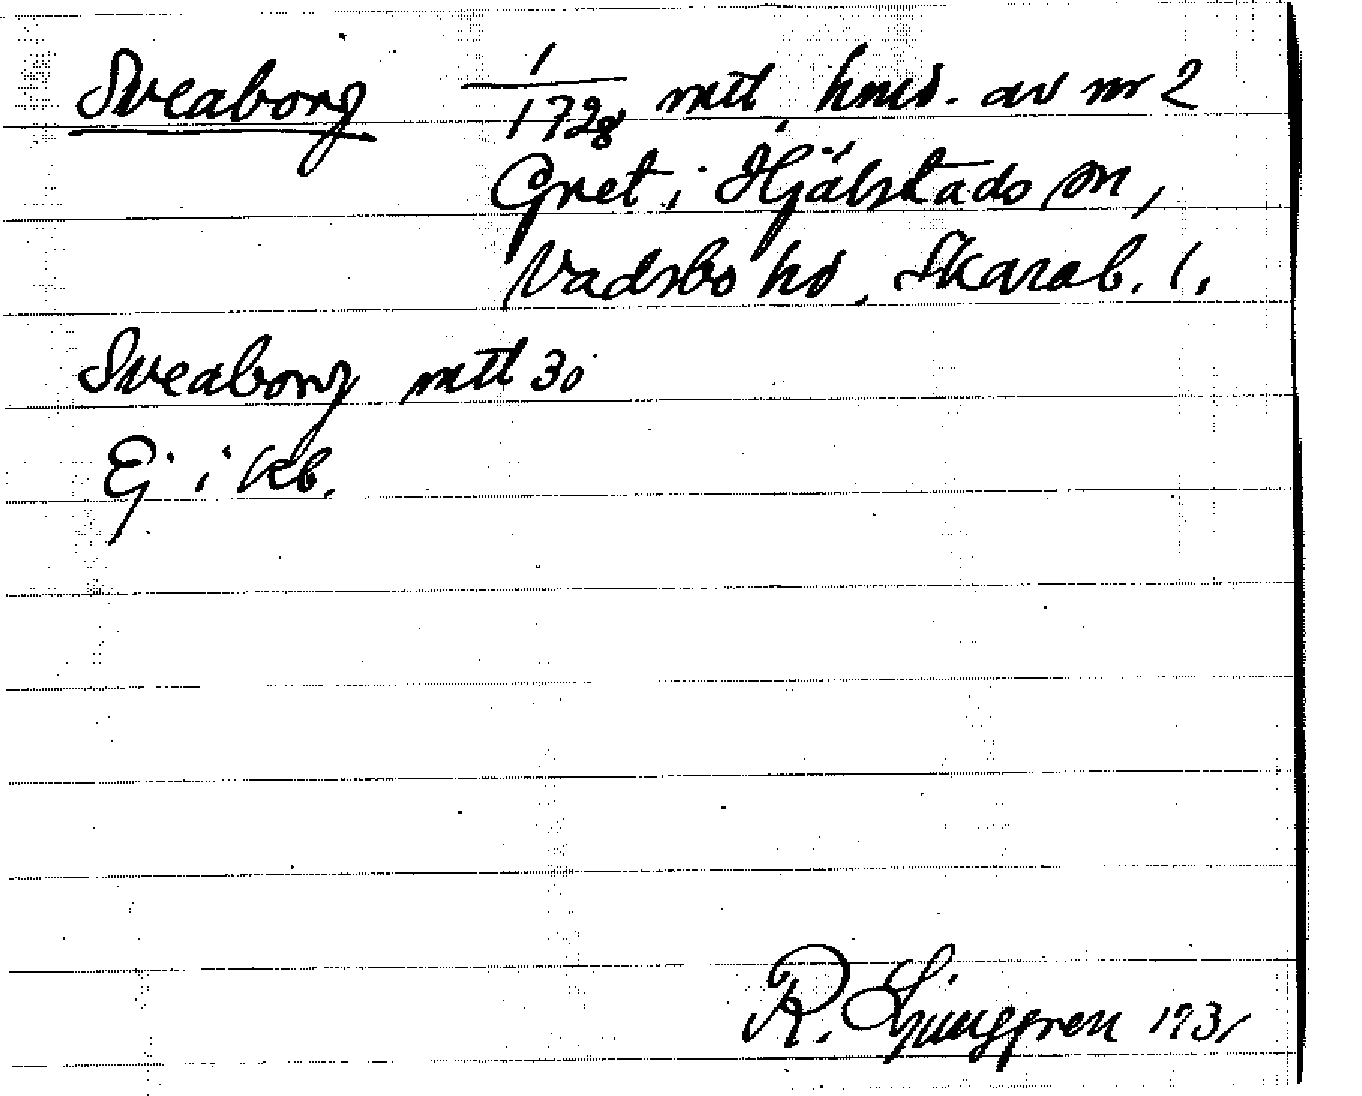 Sveaborg 1/1728 mtl, hmd. av nr 2
Gret i Hjälstads sn,
Vadsbo hd, Skarab. l.
Sveaborg mtl 30
Ej i kb.
R. Ljunggren 1931